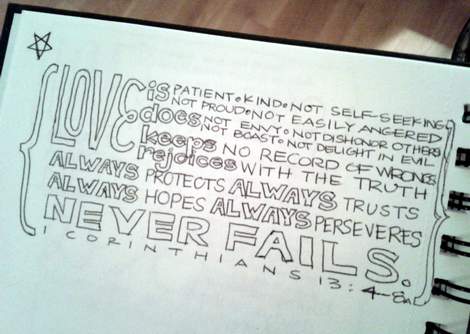 LOVE is PATIENT • KIND • NOT SELF-SEEKING
NOT PROUD • NOT EASILY ANGERED
does NOT ENVY • NOT DISHONOR OTHERS
NOT BOAST • NOT DELIGHT IN EVIL
keeps NO RECORD OF WRONGS
rejoices WITH THE TRUTH
ALWAYS PROTECTS ALWAYS TRUSTS
ALWAYS HOPES ALWAYS PERSEVERES
NEVER FAILS.
1 CORINTHIANS 13:4-8a